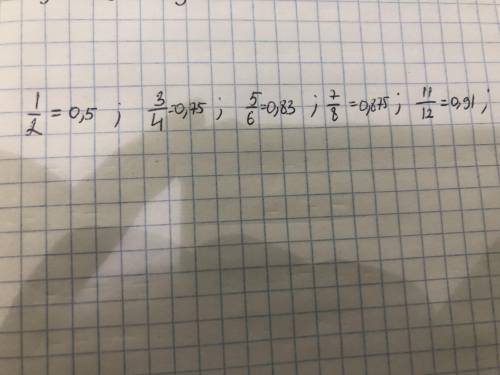 1/2 = 0,5 ; 3/4 = 0,75 ; 5/6 = 0,83 ; 7/8 = 0,875 ; 11/12 = 0,91 ;